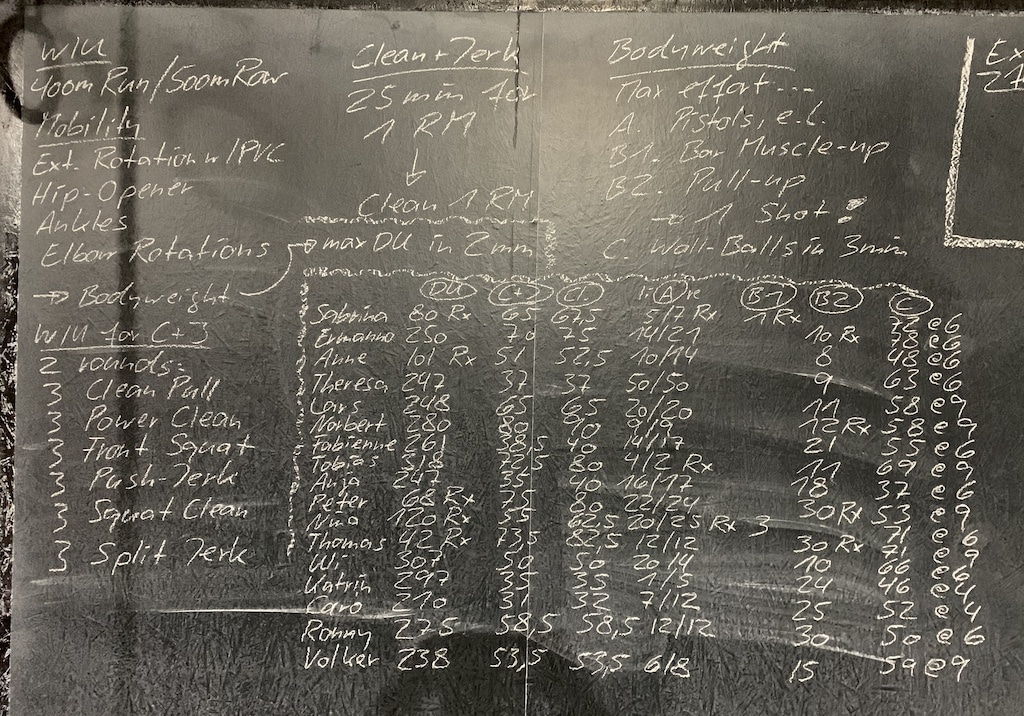 W/U
400m Run/500m Row
Mobility
Ext. Rotation w/PVC
Hip-Opener
Ankles
Elbow Rotations
→ Bodyweight
W/U for C+J
2 rounds:
3 Clean Pull
3 Power Clean
3 Front Squat
3 Push-Jerk
3 Squat Clean
3 Split Jerk
Clean+Jerk
25min for
1 RM
↓
Clean 1 RM
→ max DU in 2min
Bodyweight
Max effort...
A. Pistols, e.l.
B1. Bar Muscle-up
B2. Pull-up
→ 1 Shot!
C. Wall-Balls in 3min
Ex
21
DU C+J Cl. li A re B1 B2 C
Sabrina 80 Rx 65 67,5 5/7 Rx 1 Rx @ 6
Ermanno 250 70 75 14/21 10 Rx 78 @ 6
Anne 101 Rx 51 52,5 10/14 8 48 @ 6
Theresa 247 37 37 50/50 9 63 @ 6
Lars 248 65 65 20/20 11 58 @ 9
Norbert 280 80 90 9/9 12 Rx 58 @ 9
Fabienne 261 38,5 40 14/17 21 55 @ 9
Tobias 80 4/2 Rx 11 69 @ 9
Anja 247 35 40 16/17 18 37 @ 6
Peter 68 Rx 75 80 22/24 30 Rx 53 @ 9
Nina 120 Rx 55 62,5 20/25 Rx 3 71 @ 6
Thomas 42 Rx 73,5 82,5 12/12 30 Rx 71 @ 9
307 50 50 20/14 10 66 @ 6
Katrin 297 35 35 1/5 24 46 @ 4
Caro 210 7/12 25 52 @ 4
Ronny 275 58,5 58,5 12/12 30 50 @ 6
Volker 238 53,5 53,5 6/8 15 59 @ 9